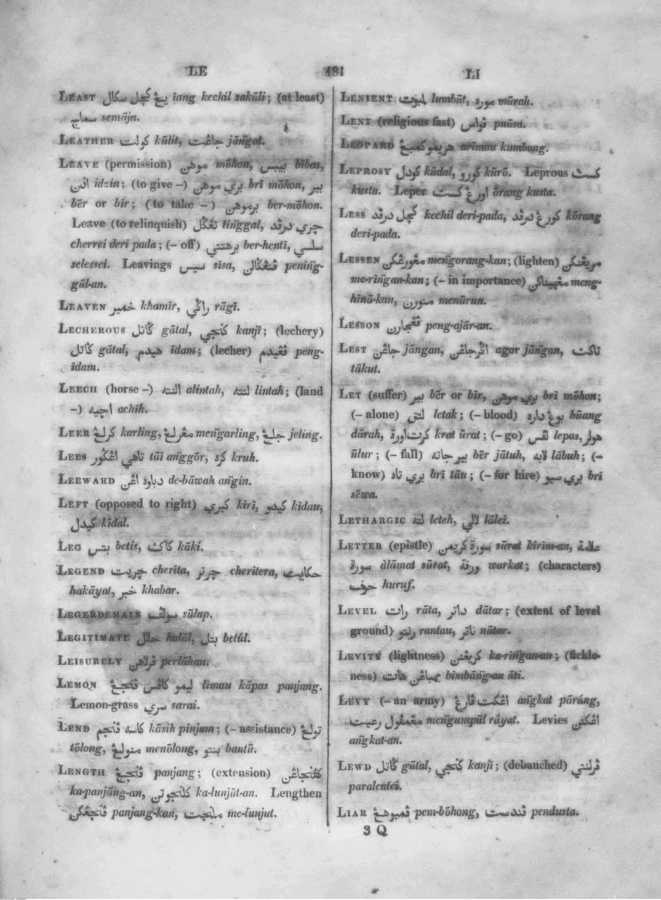 LE
481
LI
LEAST يڠ كچل سكال iang kechil sakāli; (at least)
سماج semāja.
LEATHER كولت kūlit, جاڠت jāngat.
LEAVE (permission) موهن mōhon, بيبس bibas,
اذن idzin; (to give –) بري موهن brī mōhon, بير
bēr or bir; (to take –) برموهن ber-mōhon.
Leave (to relinquish) تڠگل tinggal, چري درڤد
cherrei deri pada; (– off) برهنتي ber-henti, سلسي
selesseï. Leavings سيس sīsa, pening-
gāl-an.
LEAVEN خمير khamīr, راڬي rāgī.
LECHEROUS گاتل gātal, كنجي kanjī; (lechery)
گاتل gātal, هيدم īdam; (lecher) ڤڠيدم peng-
īdam.
LEECH (horse –) النته alintah, لنته lintah; (land
–) اچيه achih.
LEER كرلڠ karling, مڠرلڠ mengarling, جلڠ jeling.
LEES تاهي اڠگور tāi anggōr, كرو kruh.
LEEWARD دباوه اڠن de-bāwah angin.
LEFT (opposed to right) كيري kīrī, كيدو kīdau,
كيدل kīdal.
LEG بتس betis, كاكي kāki.
LEGEND چريت cherita, چرتر cheritera, حكايت
hakāyat, خبر khabar.
LEGERDEMAIN سولڤ sūlap.
LEGITIMATE حلال halāl, بتل betūl.
LEISURELY ڤرلاهن perlāhan.
LEMON ليمو كاڤس ڤنجڠ līmau kāpas panjang.
Lemon-grass سري sarai.
LEND كاسه ڤنجم kāsih pinjam; (– assistance) تولڠ
tōlong, منولڠ menōlong, بنتو bantū.
LENGTH ڤنجڠ panjang; (extension) كڤنجاڠن
ka-panjāng-an, كلنجوتن ka-lunjūt-an. Lengthen
ڤنجڠكن panjang-kan, ملنجت me-lunjut.
LENIENT لمبوت lumbūt, موره mūrah.
LENT (religious fast) ڤواس puāsa.
LEOPARD هريمو كمبڠ arīmau kumbang.
LEPROSY كودل kūdal, كورو kūrō. Leprous كست
kusta. Leper اورڠ كست ōrang kusta.
LESS كچل درڤد kechil deri-pada, كورڠ درڤد kōrang
deri-pada.
LESSEN مڠورڠكن mengorang-kan; (lighten) مريڠنكن
me-ringan-kan; (– in importance) مڠهيناكن meng-
hīnā-kan, منورن menūrun.
LESSON ڤڠجارن peng-ajār-an.
LEST جاڠن jāngan, اڬرجاڠن agar jāngan, تاكت
tākut.
LET (suffer) بير bēr or bir, بري موهن brī mōhon;
(– alone) لتق letak; (– blood) بوڠ داره būang
dārah, كرت اورة krat ūrat; (– go) لڤس lepas, هولر
ūlur; (– fall) بير جاته bēr jātuh, لابه lābuh; (–
know) بري تاو brī tāu; (– for hire) بري سيو brī
sēwa.
LETHARGIC لته leteh, لالي lāleï.
LETTER (epistle) سورة كريمن sūrat kirīm-an, علامة
سورة ālāmat sūrat, ورقة warkat; (characters)
حرف huruf.
LEVEL رات rāta, داتر dātar; (extent of level
ground) رنتو rantau, ناتر nātar.
LEVITY (lightness) كريڠنن ka-ringan-an; (fickle-
ness) بمباڠن هات bimbāng-an āti.
LEVY (– an army) اڠكت ڤارڠ angkat pārang,
مڠمڤول رعيت mengumpūl rāyat. Levies اڠكتن
angkat-an.
LEWD گاتل gātal, كنجي kanjī; (debauched) ڤرلنتي
paralenteï.
LIAR ڤمبوهڠ pem-bōhong, ڤندست pendusta.
3 Q